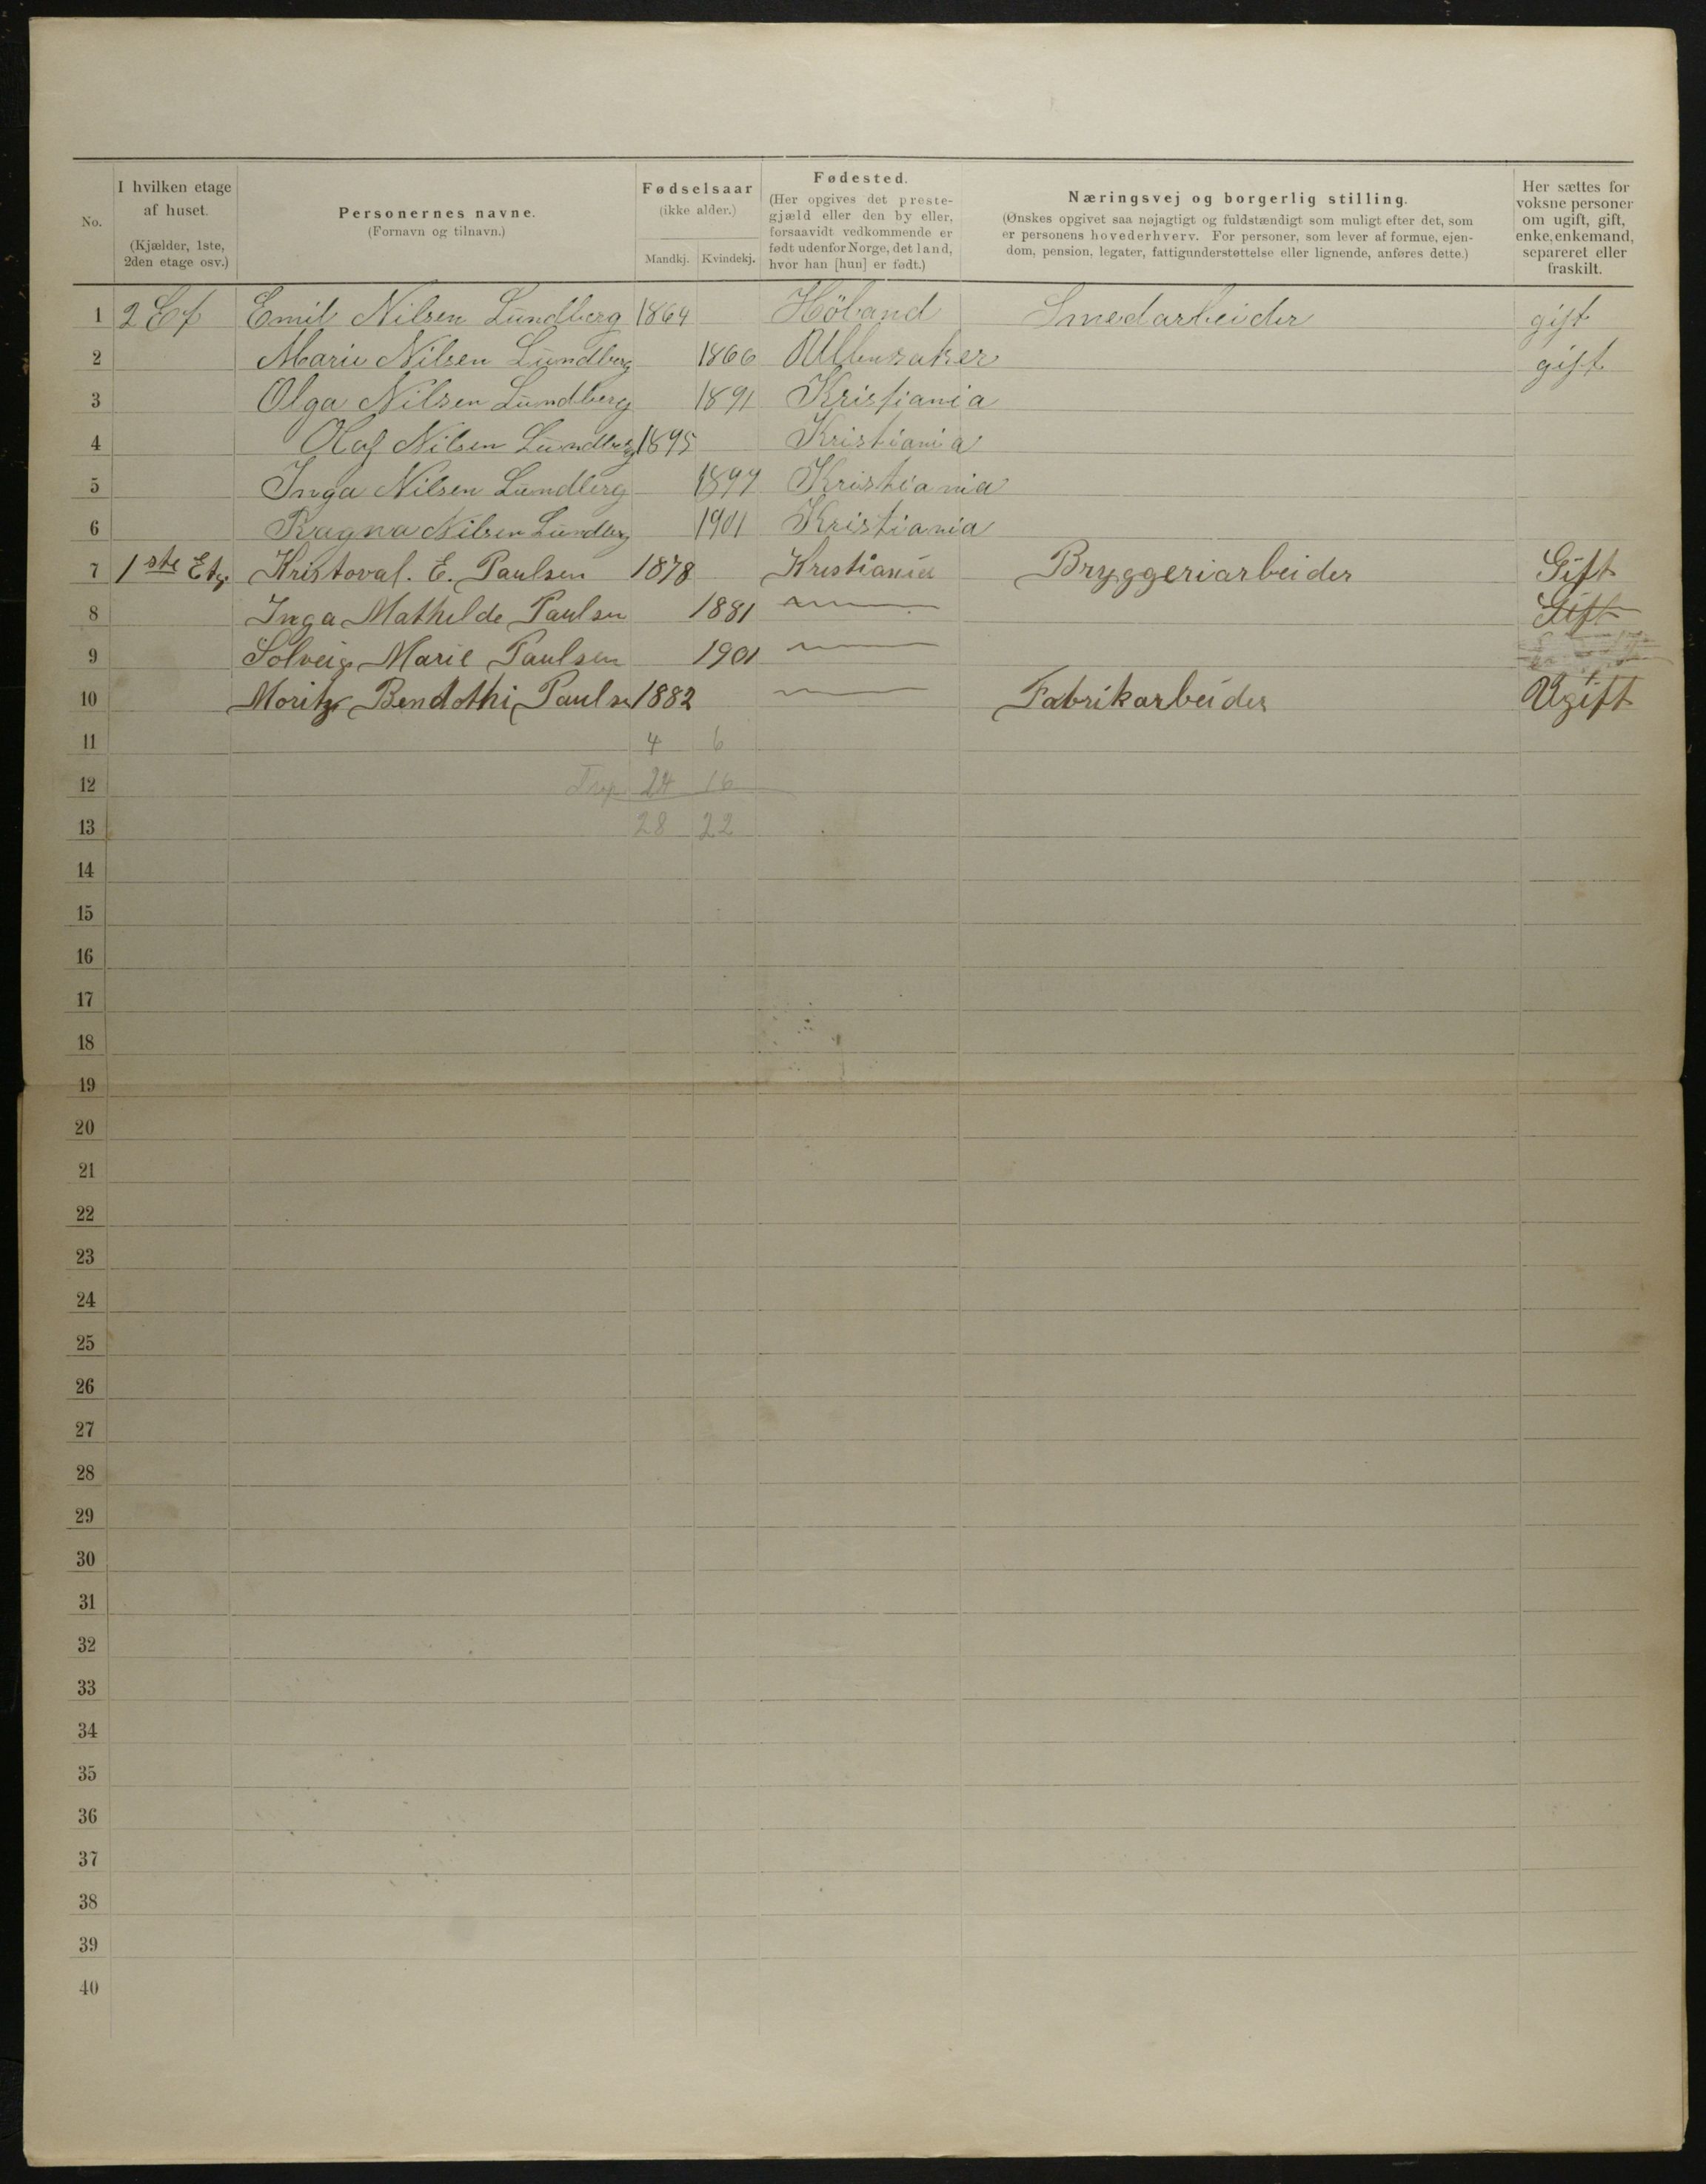 No.
I hvilken etage af huset.
(Kjælder, 1ste, 2den etage osv.)
Personernes navne.
(Fornavn og tilnavn.)
Fødselsaar
(ikke alder.)
Mandkj. Kvindekj.
Fødested.
(Her opgives det prestegjæld eller den by eller, forsaavidt vedkommende er født udenfor Norge, det land, hvor han [hun] er født.)
Næringsvej og borgerlig stilling.
(Ønskes opgivet saa nøjagtigt og fuldstændigt som muligt efter det, som er personens hovederhverv. For personer, som lever af formue, ejendom, pension, legater, fattigunderstøttelse eller lignende, anføres dette.)
Her sættes for voksne personer om ugift, gift, enke, enkemand, separeret eller fraskilt.
1 2 Et Emil Nilsen Lundberg 1864 Höland Smedarbeider gift
2 Marie Nilsen Lundberg 1866 Ullensaker gift
3 Olga Nilsen Lundberg 1891 Kristiania
4 Olaf Nilsen Lundberg 1895 Kristiania
5 Inga Nilsen Lundberg Kristiania
6 Ragna Nilsen Lundberg 1901 Kristiania
7 1ste Etg. Kristoval. E. Paulsen 1878 Kristiania Bryggeriarbeider Gift
8 Inga Mathilde Paulsen 1881 Gift
9 Solveig Marie Paulsen 1901
10 Moritz Paulsen 1882 Fabrikarbeider Ugift
11 4 6
12 24 16
13 28 22
14
15
16
17
18
19
20
21
22
23
24
25
26
27
28
29
30
31
32
33
34
35
36
37
38
39
40